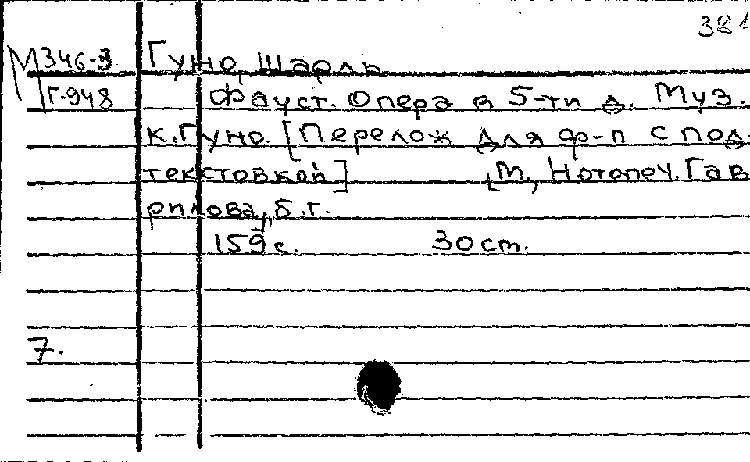 381
М346-3 Гуно, Шарль
Г-948 Фауст. Опера в 5-ти д. Муз.
к. Гуно. [Перелож для ф-п с под.
текстовкой] [М., Нотопеч. Гав
рилова, б.г.
159 с. 30 cm.
7.